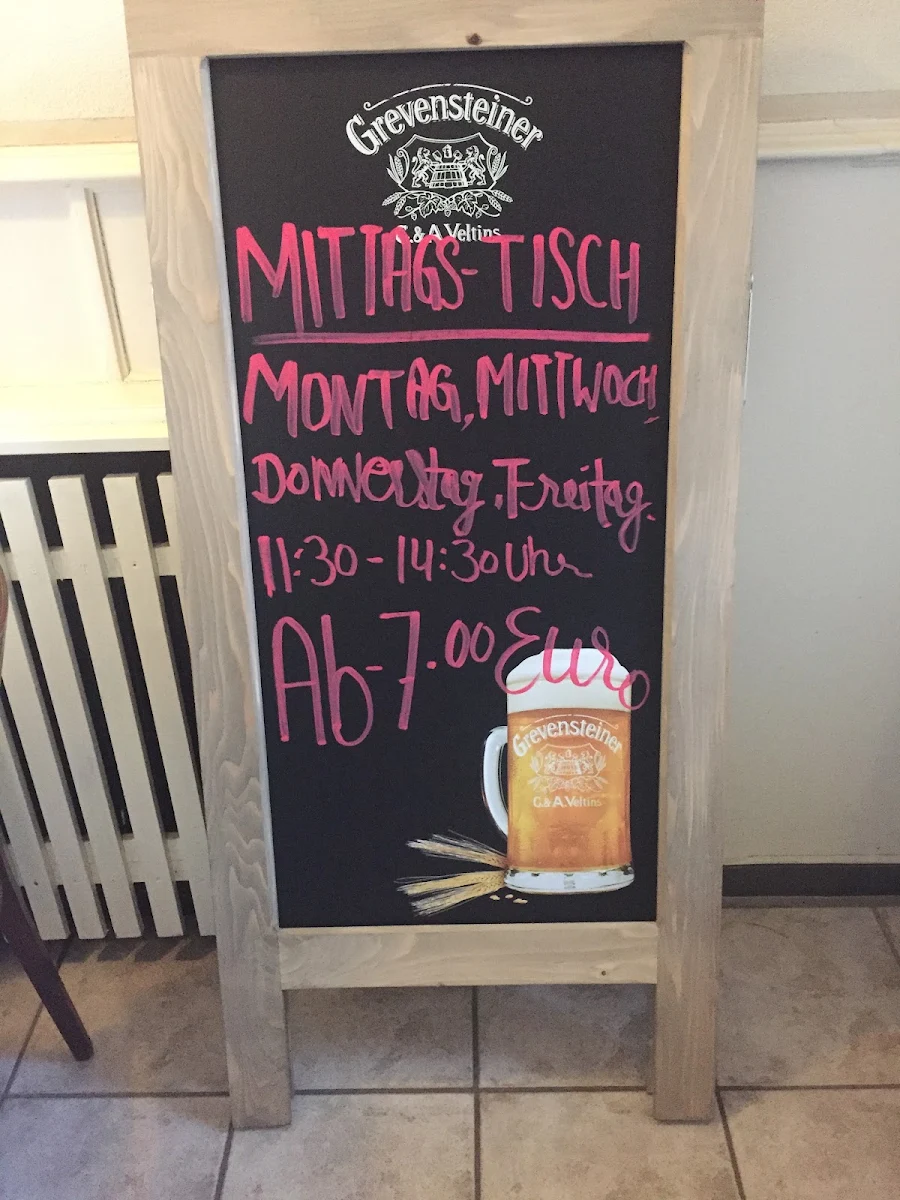 Grevensteiner
C. & A. Veltins
MITTAGS-TISCH
MONTAG, MITTWOCH
DONNERstag, Freitag.
11:30-14:30 Uhr
Ab-7.00 Euro
Grevensteiner
C. & A. Veltins